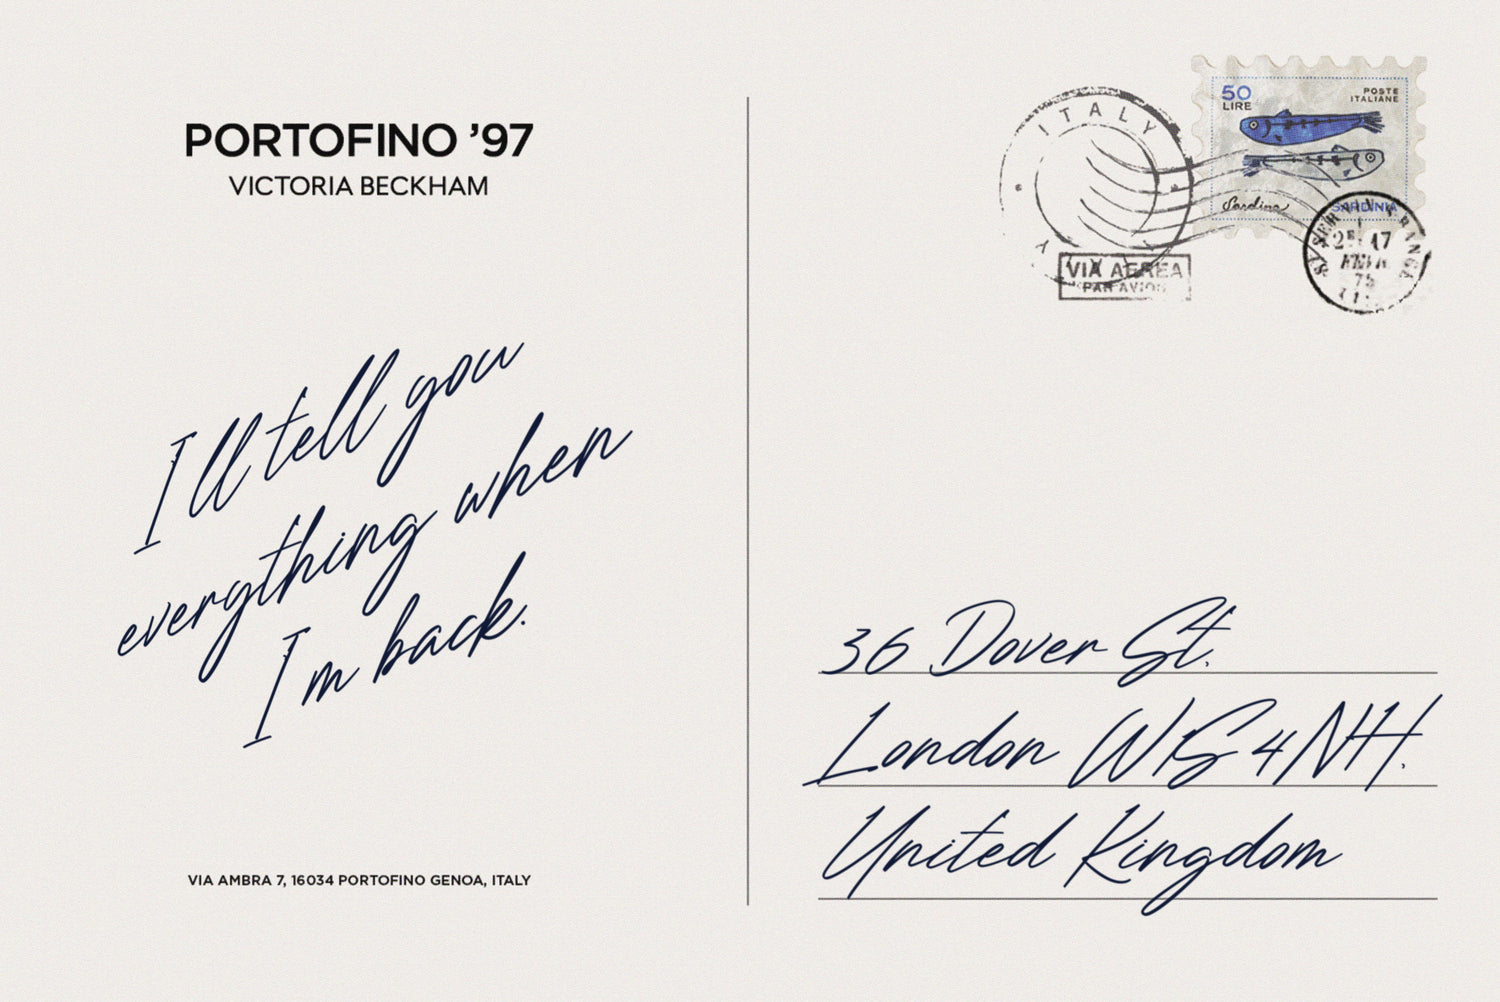 PORTOFINO ’97
VICTORIA BECKHAM
I'll tell you
everything when
I'm back.
VIA AMBRA 7, 16034 PORTOFINO GENOA, ITALY
ITALY
50
LIRE
POSTE
ITALIANE
Sardine
SARDINIA
VIA AEREA
PAR AVION
17
75
36 Dover St.
London W1S 4NH.
United Kingdom